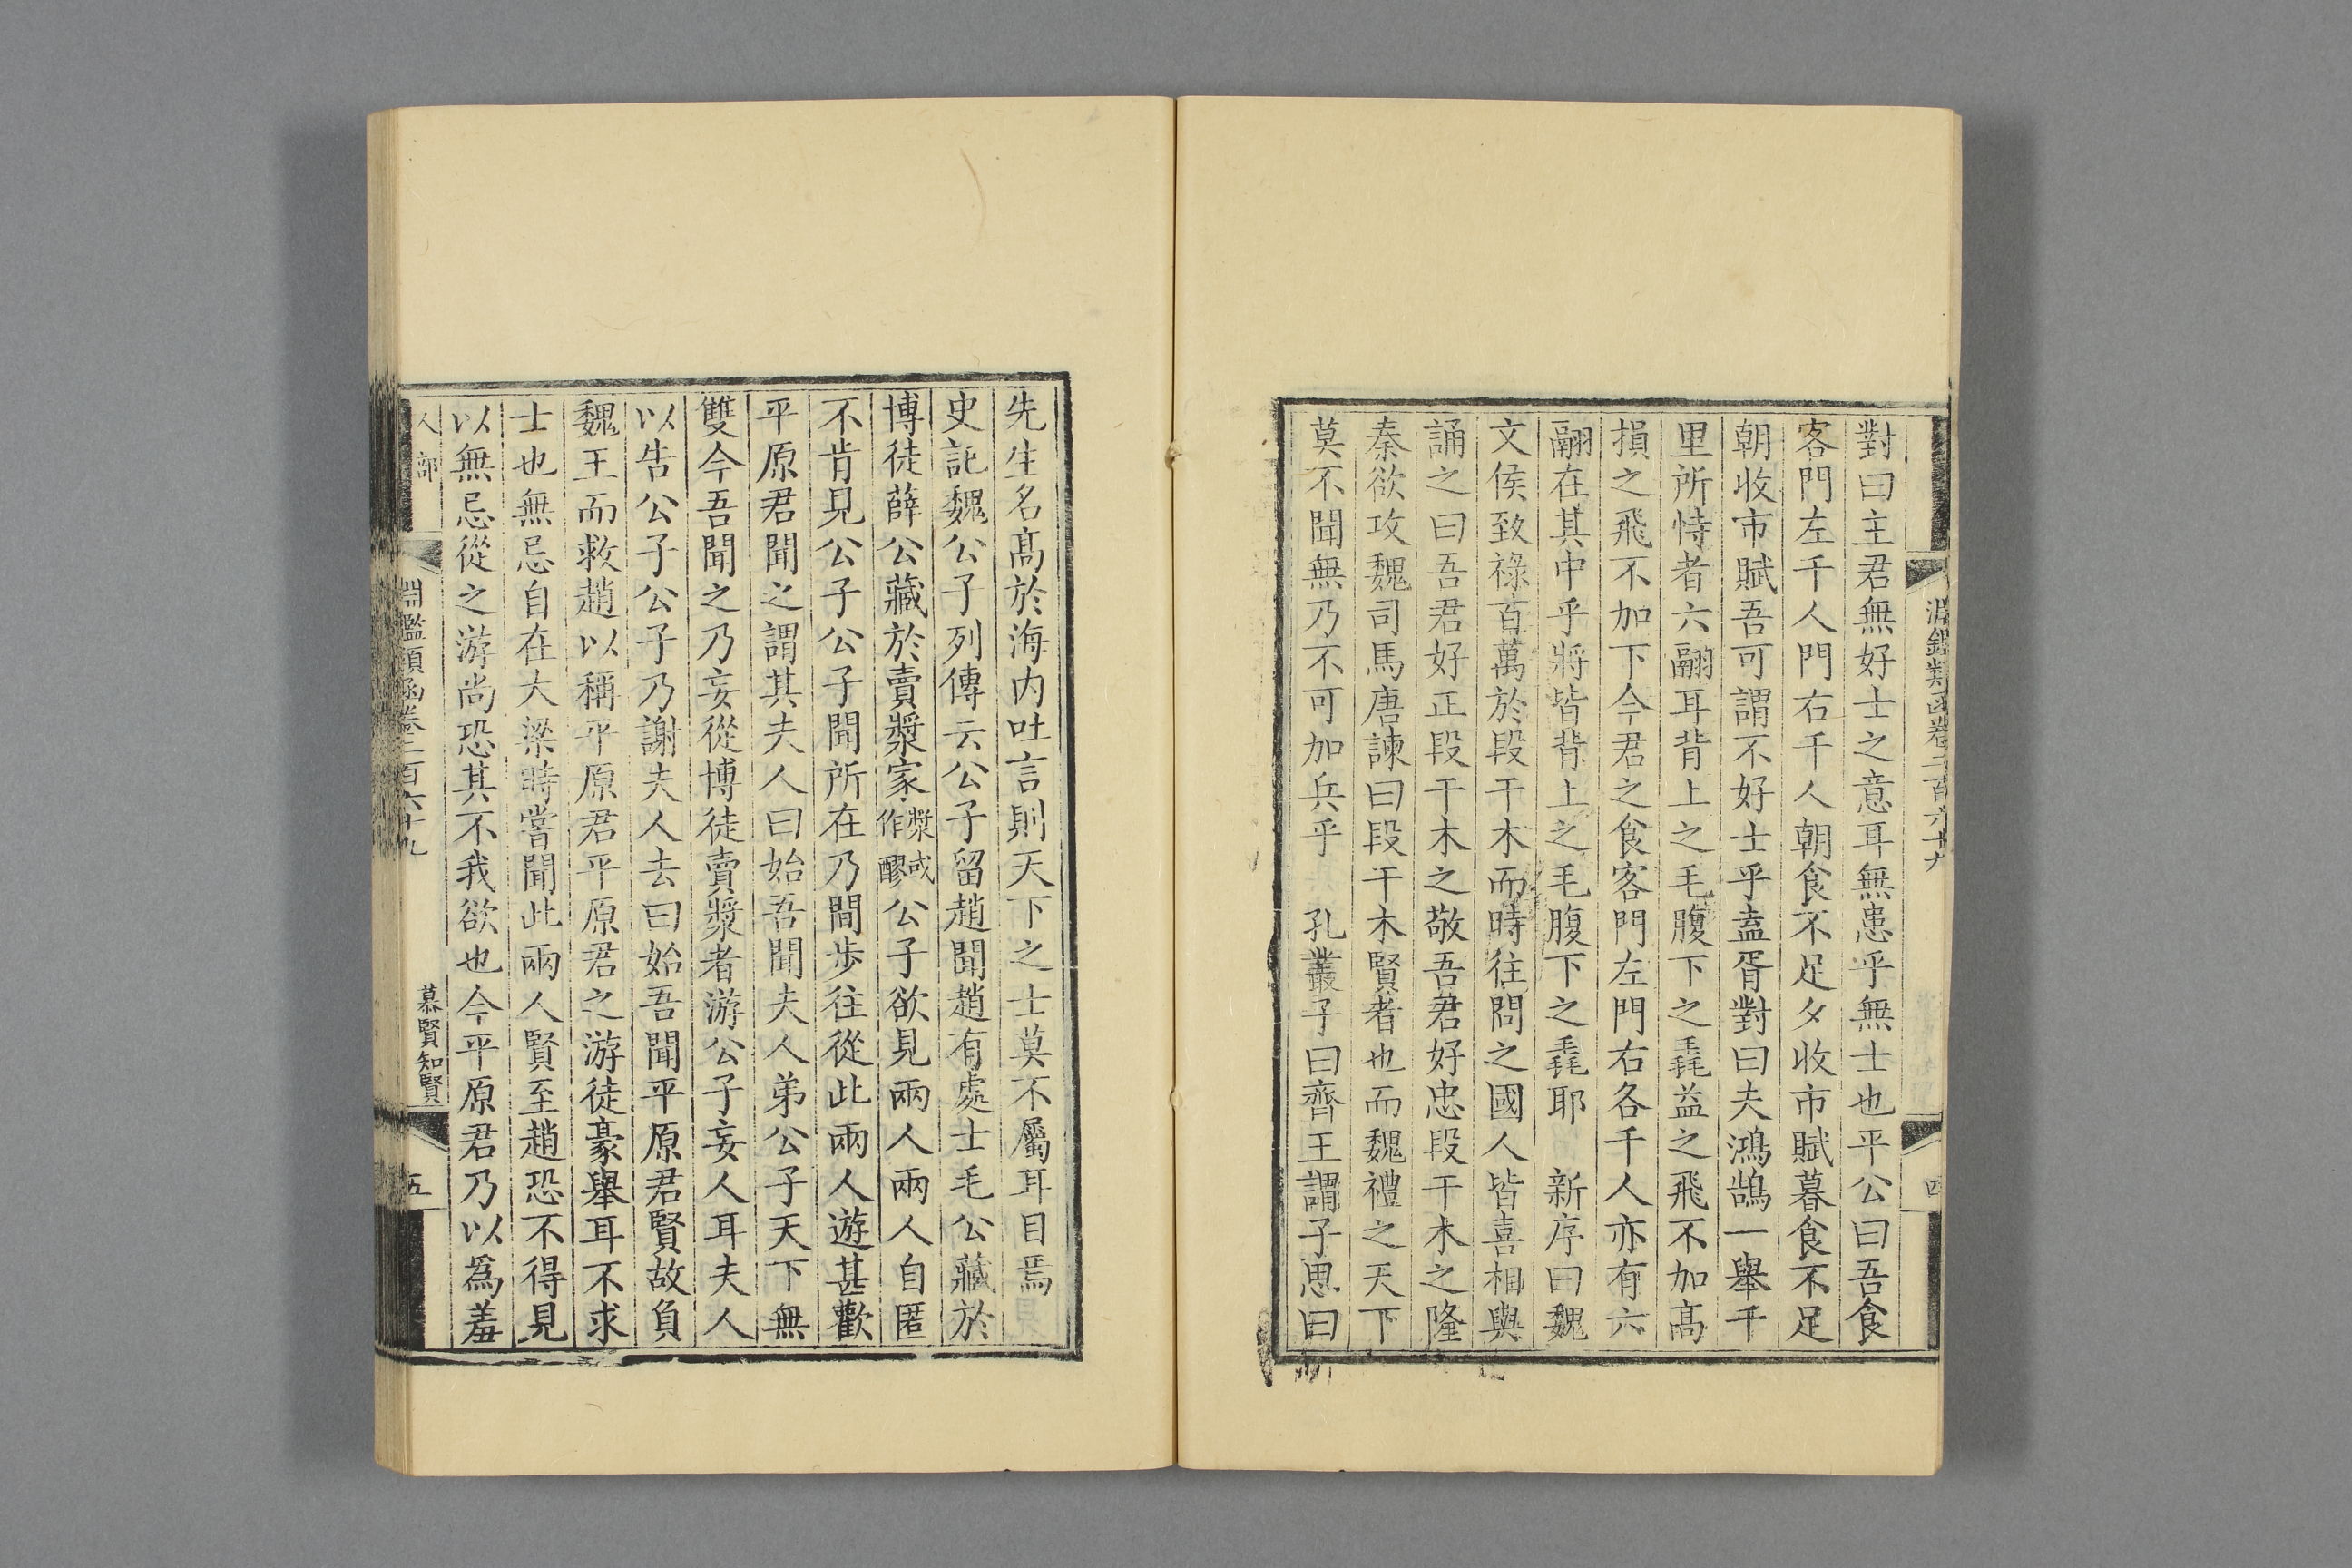 淵鑑類函卷二百六十九
四
對曰主君無好士之意耳無患乎無士也平公曰吾食
客門左千人門右千人朝食不足夕收市賦暮食不足
朝收市賦吾可謂不好士乎盍胥對曰夫鴻鵠一舉千
里所恃者六翮耳背上之毛腹下之毳益之飛不加高
損之飛不加下今君之食客門左門右各千人亦有六
翮在其中乎將皆背上之毛腹下之毳耶　新序曰魏
文侯致祿百萬於段干木而時往問之國人皆喜相與
誦之曰吾君好正段干木之敬吾君好忠段干木之隆
秦欲攻魏司馬唐諫曰段干木賢者也而魏禮之天下
莫不聞無乃不可加兵乎　孔叢子曰齊王謂子思曰
先生名高於海内吐言則天下之士莫不屬耳目焉
史記魏公子列傳云公子留趙聞趙有處士毛公藏於
博徒薛公藏於賣漿家漿或作醪公子欲見兩人兩人自匿
不肯見公子公子聞所在乃閒步往從此兩人遊甚歡
平原君聞之謂其夫人曰始吾聞夫人弟公子天下無
雙今吾聞之乃妄從博徒賣漿者游公子妄人耳夫人
以告公子公子乃謝夫人去曰始吾聞平原君賢故負
魏王而救趙以稱平原君平原君之游徒豪舉耳不求
士也無忌自在大梁時嘗聞此兩人賢至趙恐不得見
以無忌從之游尚恐其不我欲也今平原君乃以爲羞
人部
淵鑑類函卷二百六十九
慕賢知賢
五